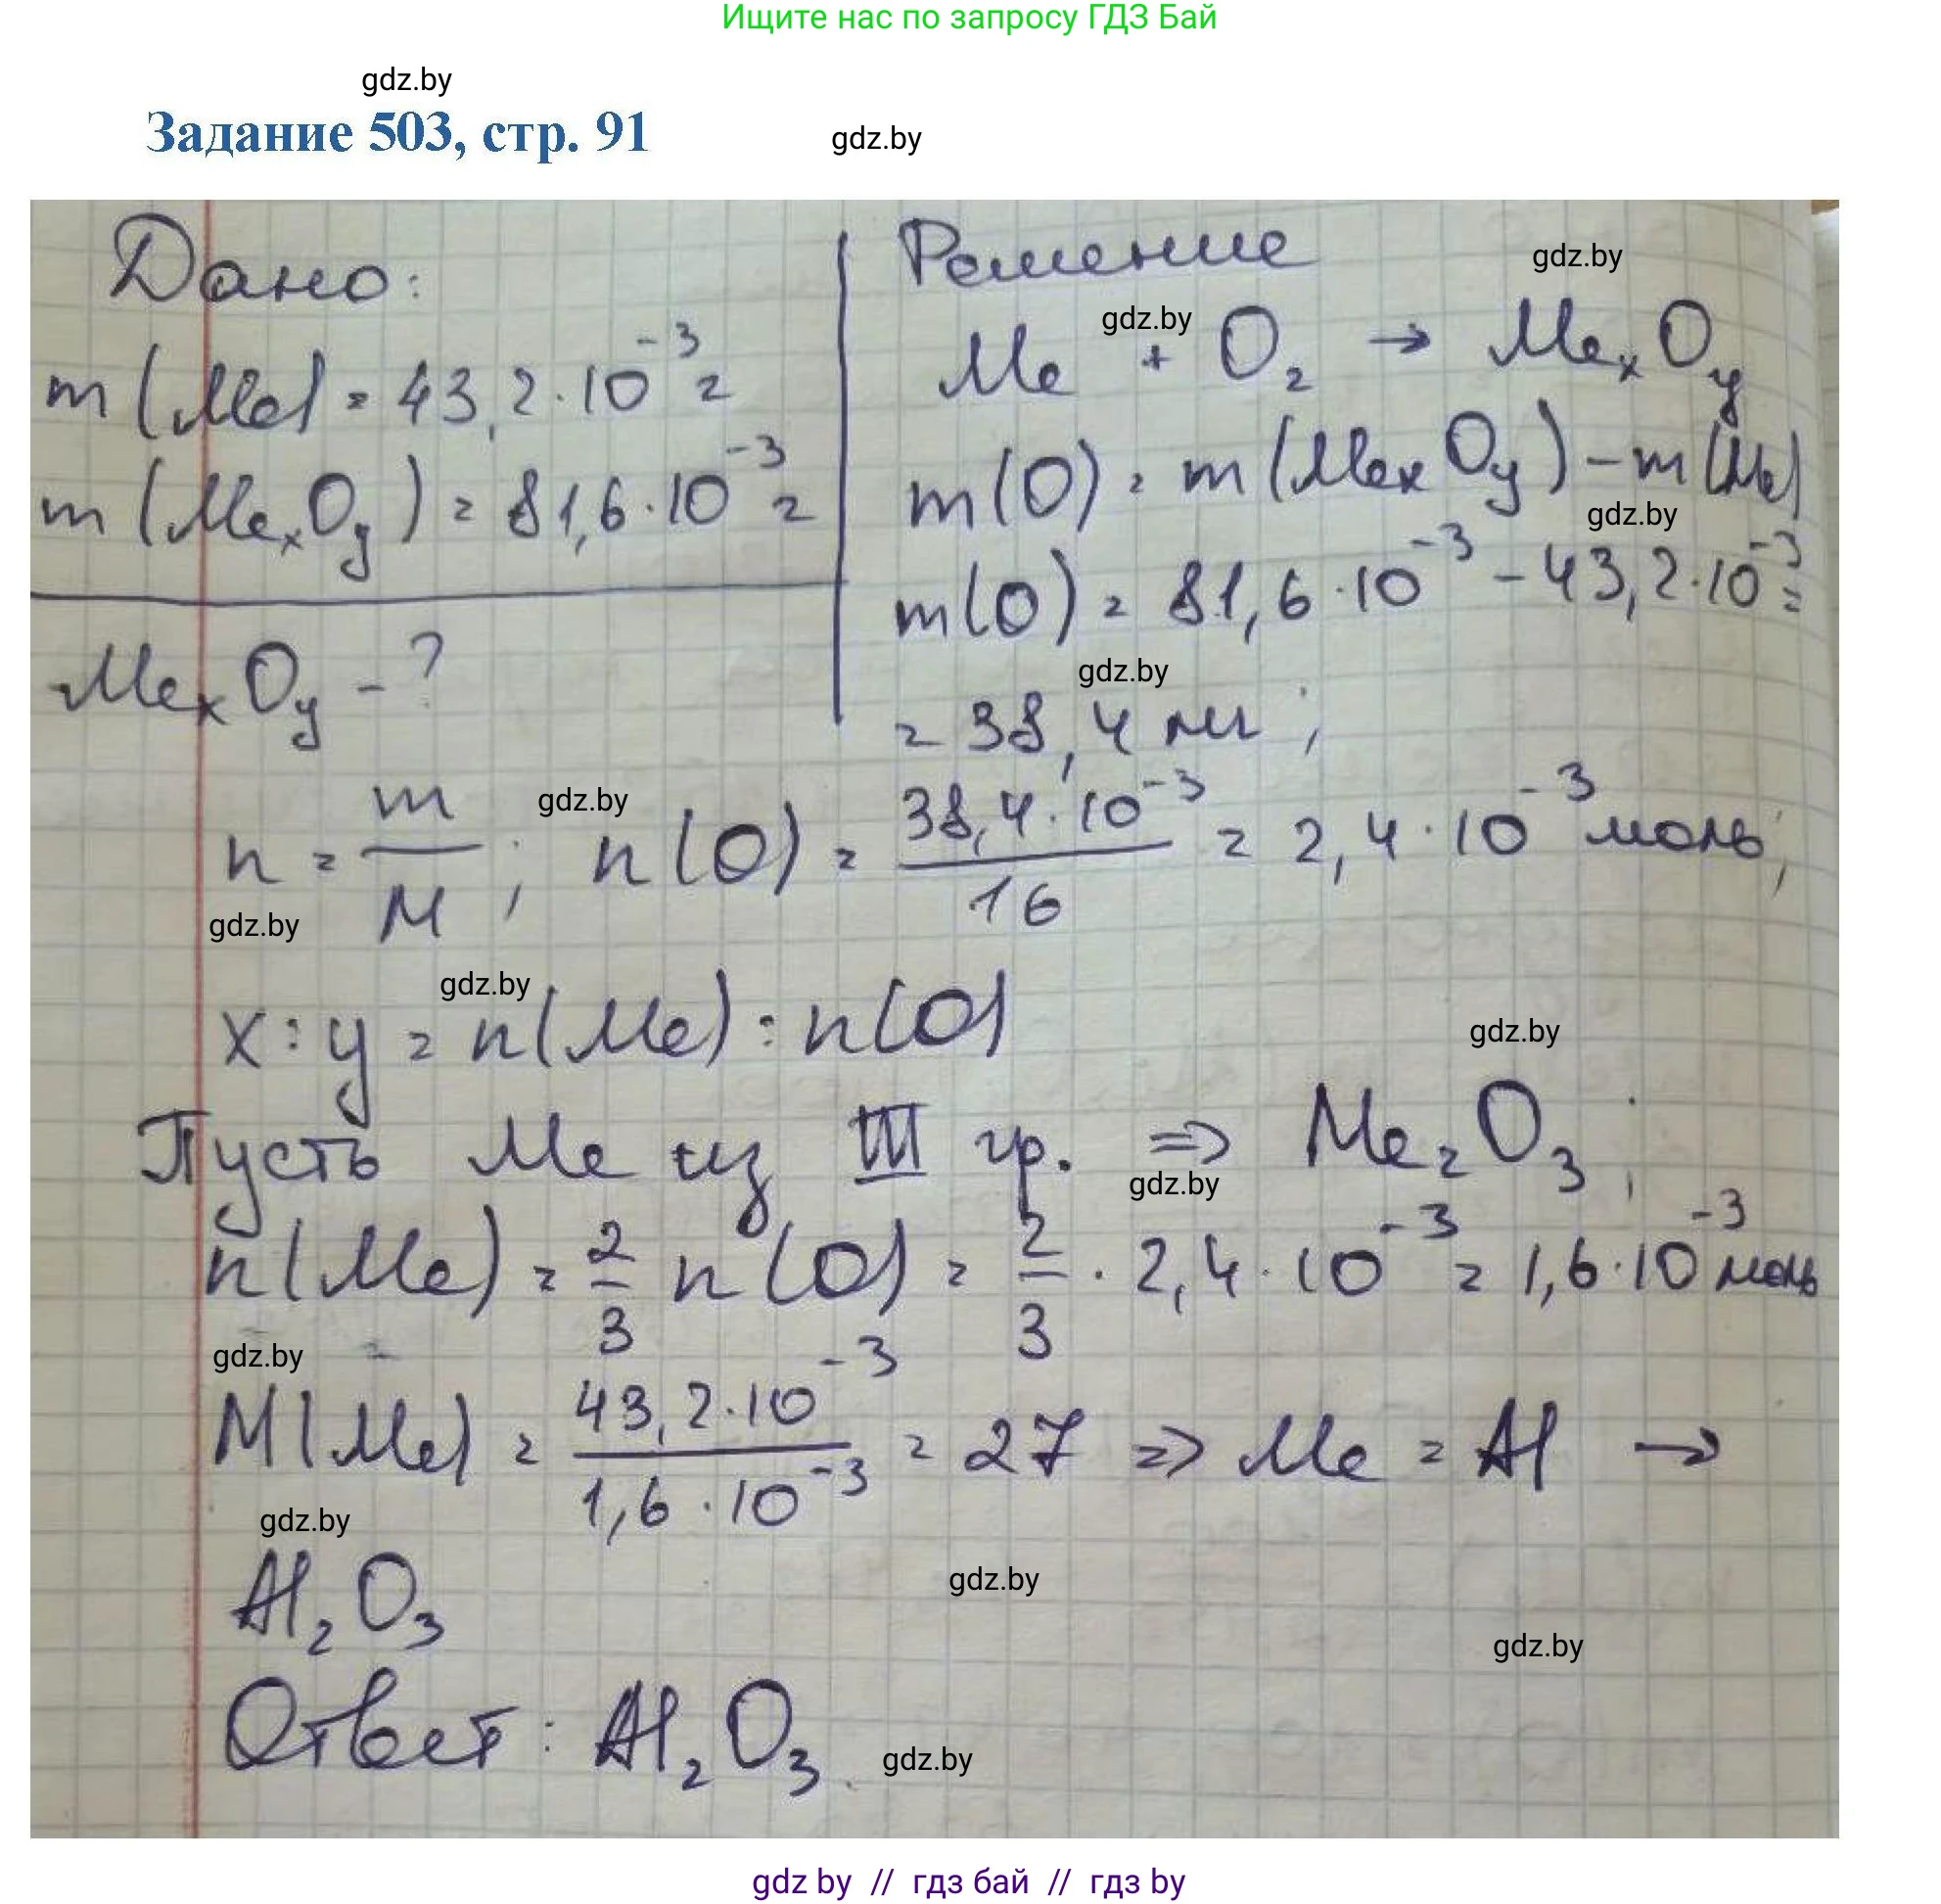 Ищите нас по запросу ГДЗ Бай
gdz.by
Задание 503, стр. 91
gdz.by
Дано:
m(Me) = 43,2·10⁻³ г
m(MeₓOᵧ) = 81,6·10⁻³ г
MeₓOᵧ - ?
Решение
gdz.by
gdz.by
Me + O₂ → MeₓOᵧ
m(O) = m(MeₓOᵧ) - m(Me)
gdz.by
m(O) = 81,6·10⁻³ - 43,2·10⁻³ =
gdz.by
= 38,4 мг;
gdz.by
n = m/M; n(O) = 38,4·10⁻³/16 = 2,4·10⁻³ моль;
gdz.by
gdz.by
x : y = n(Me) : n(O)
gdz.by
Пусть Me из III гр. => Me₂O₃;
gdz.by
n(Me) = 2/3 n(O) = 2/3 · 2,4·10⁻³ = 1,6·10⁻³ моль
gdz.by
M(Me) = 43,2·10⁻³/1,6·10⁻³ = 27 => Me = Al →
gdz.by
Al₂O₃
gdz.by
gdz.by
Ответ: Al₂O₃.
gdz.by
gdz by // гдз бай // гдз by